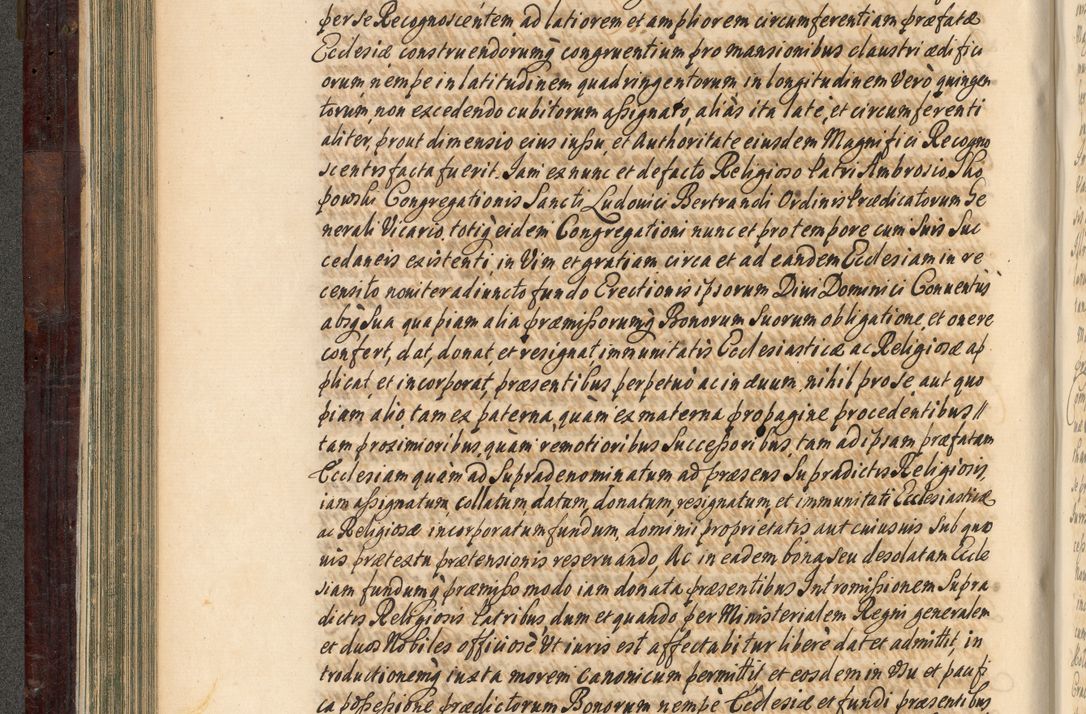 per se Recognoscentem ad latiorem et ampliorem circumferentiam præfatæ
Ecclesiæ construendorumq congruentium pro mansionibus claustri ædifici
orum nempe in latitudinem quadringentorum in longitudinem verò quingen
torum, non excedendo cubitorum assignato, aliàs ita latè, et circumferenti
aliter, prout dimensio eius iussu, et Authoritate eiusdem Magnifici Recogno
scentis facta fuerit. Iam ex nunc et de facto Religioso Patri Ambrosio Sko
powski Congregationis Sancti Ludovici Bertrandi Ordinis Prædicatorum Ge
nerali Vicario, totiq eidem Congregationi nunc et pro tempore cum suis Suc
cedaneis existenti, in Vim et gratiam circa et ad eandem Ecclesiam in re
censito noviter adiuncto fundo Erectionis ipsorum Divi Dominici Conventus
absq Sua quapiam alia præmissorumq Bonorum Suorum obligatione, et onere
confert, dat, donat et resignat, immunitatis Ecclesiasticæ ac Religiosæ ap
plicat, et incorporat, præsentibus, perpetuò ac in ævum, nihil pro se aut quo
piam alio, tam ex paterna, quàm ex materna propagine procedentibus //
tam proximioribus, quàm remotioribus Successoribus, tam ad ipsam præfatam
Ecclesiam quàm ad Supradenominatum ad præsens Supradictis Religiosis,
iam assignatum, collatum, datum, donatum, resignatum, et immunitati Ecclesiasticæ
ac Religiosæ incorporatum fundum, dominii proprietatis aut cuiusvis sub quo
vis, prætextu, prætensionis reservando, Ac in eadem bona seu desolatam Eccle
siam fundumq præmisso modo iam donata, præsentibus Intromissionem Supra
dictis Religiosis Patribus, dum et quando per Ministerialem Regni generalem
et duos Nobiles officiosè Ut iuris est affectabitur liberè dat et admittit, in
troductionemq iuxta morem canonicum permittit, et eosdem in Usu et pacifi
ca possessione prædictorum Bonorum nempè Ecclesiæ et fundi præsentibus